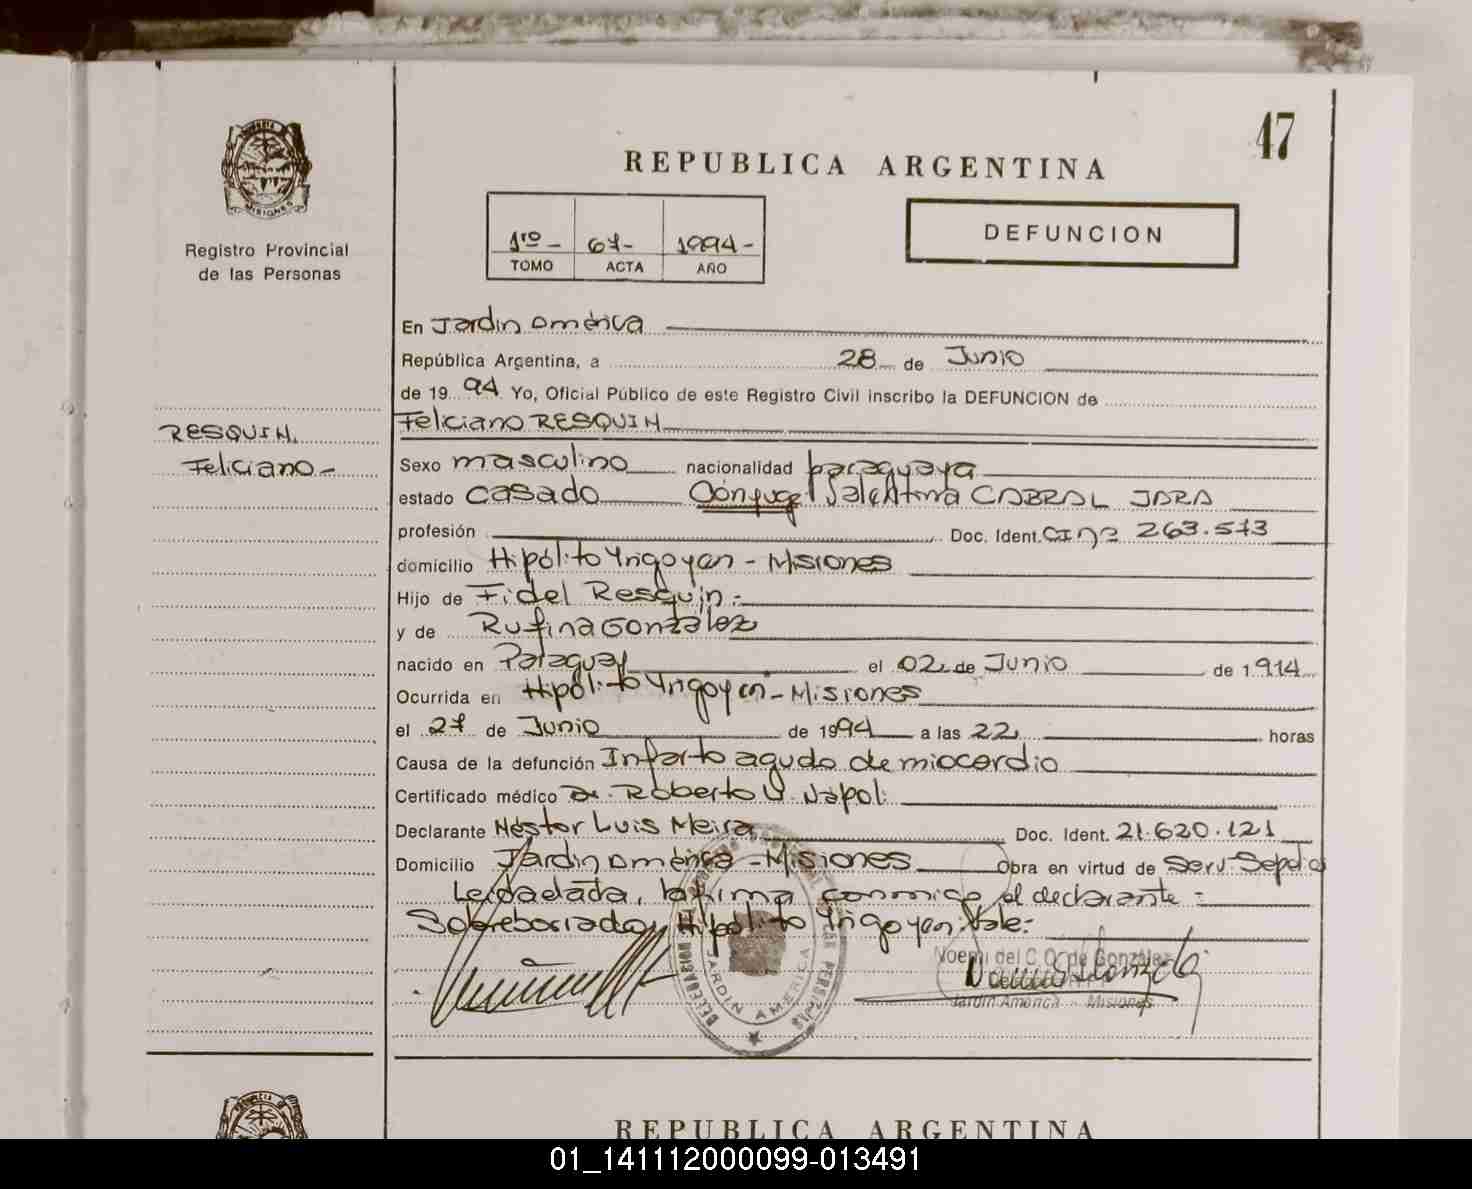 47
REPUBLICA ARGENTINA
DEFUNCION
Registro Provincial
de las Personas
1ro - 67- 1994-
TOMO ACTA AÑO
En Jardín América
República Argentina, a 28 de Junio
de 1994 Yo, Oficial Público de este Registro Civil inscribo la DEFUNCION de
Feliciano RESQUIN
RESQUIN.
Feliciano-
Sexo masculino nacionalidad paraguaya
estado casado Cónyuge Valentina CABRAL JARA
profesión Doc. Ident. CI nº 263.573
domicilio Hipólito Yrigoyen - Misiones
Hijo de Fidel Resquin.-
y de Rufina González
nacido en Paraguay el 02 de Junio de 1914
Ocurrida en Hipólito Yrigoyen - Misiones
el 27 de Junio de 1994 a las 22 horas
Causa de la defunción Infarto agudo de miocardio
Certificado médico Dr. Roberto Nápoli
Declarante Néstor Luis Meira Doc. Ident. 21.620.121
Domicilio Jardín América - Misiones Obra en virtud de Serv. Sepelio
Leída el acta, la firma conmigo el declarante:
Sobreborrado, Hipólito Yrigoyen. Vale:
DELEGACION REGISTRO PROVINCIAL DE LAS PERSONAS
JARDIN AMERICA
Noemi del C. O. de González
Jardín América - Misiones
MISIONES
REPUBLICA ARGENTINA
01_141112000099-013491